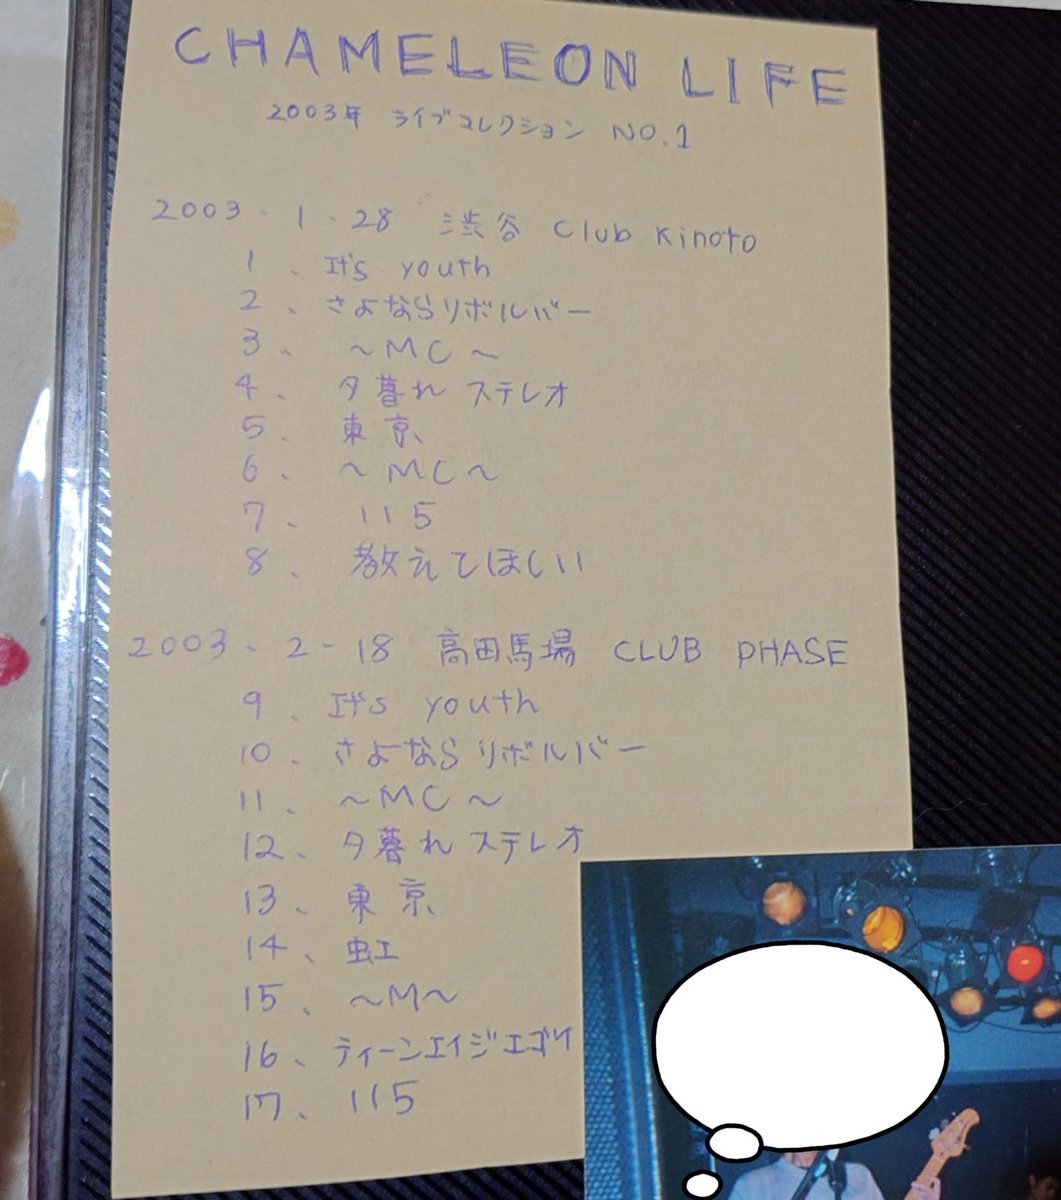 CHAMELEON LIFE
2003年 ライブコレクション NO.1
2003-1-28 渋谷 Club Kinoto
1、It's youth
2、さよならリボルバー
3、~MC~
4、夕暮れステレオ
5、東京、
6、~MC~
7、115
8、教えてほしい
2003-2-18 高田馬場 CLUB PHASE
9、It's youth
10、さよならリボルバー
11、~MC~
12、夕暮れステレオ
13、東京、
14、虹
15、~M~
16、ティーンエイジエゴイ
17、115